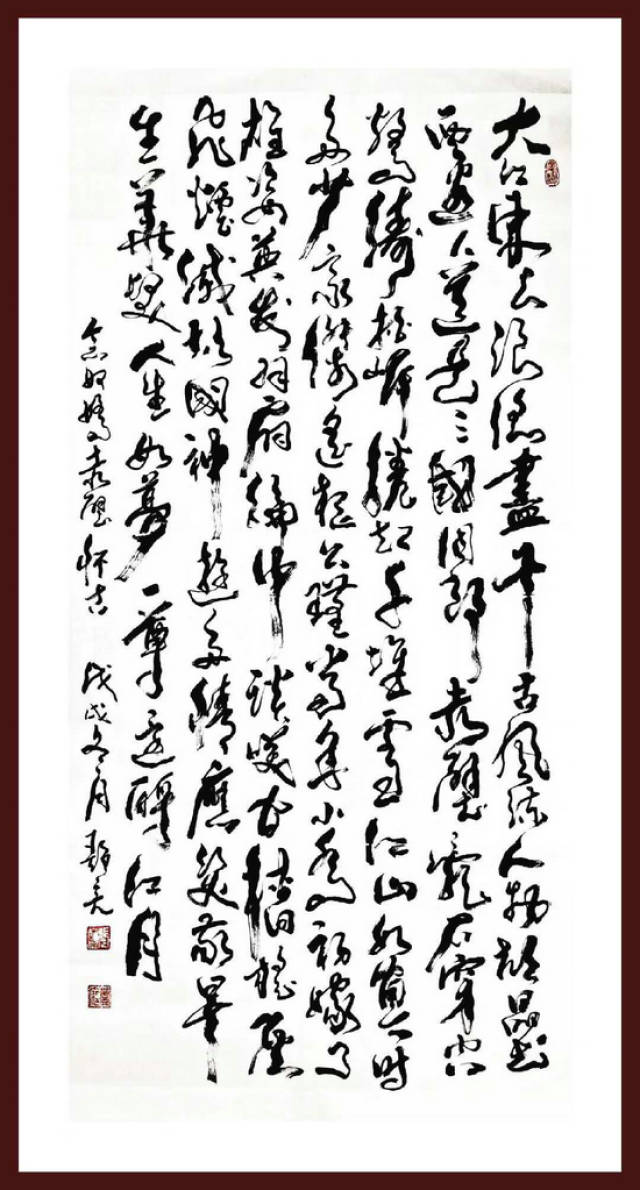 大江東去浪淘盡千古風流人物故壘
西邊人道是三國周郎赤壁亂石穿空
驚濤拍岸捲起千堆雪江山如畫一時
多少豪傑遙想公瑾當年小喬初嫁了
雄姿英發羽扇綸巾談笑間檣櫓灰
飛煙滅故國神遊多情應笑我早
生華髮人生如夢一尊還酹江月
念奴嬌赤壁怀古 戊戌冬月